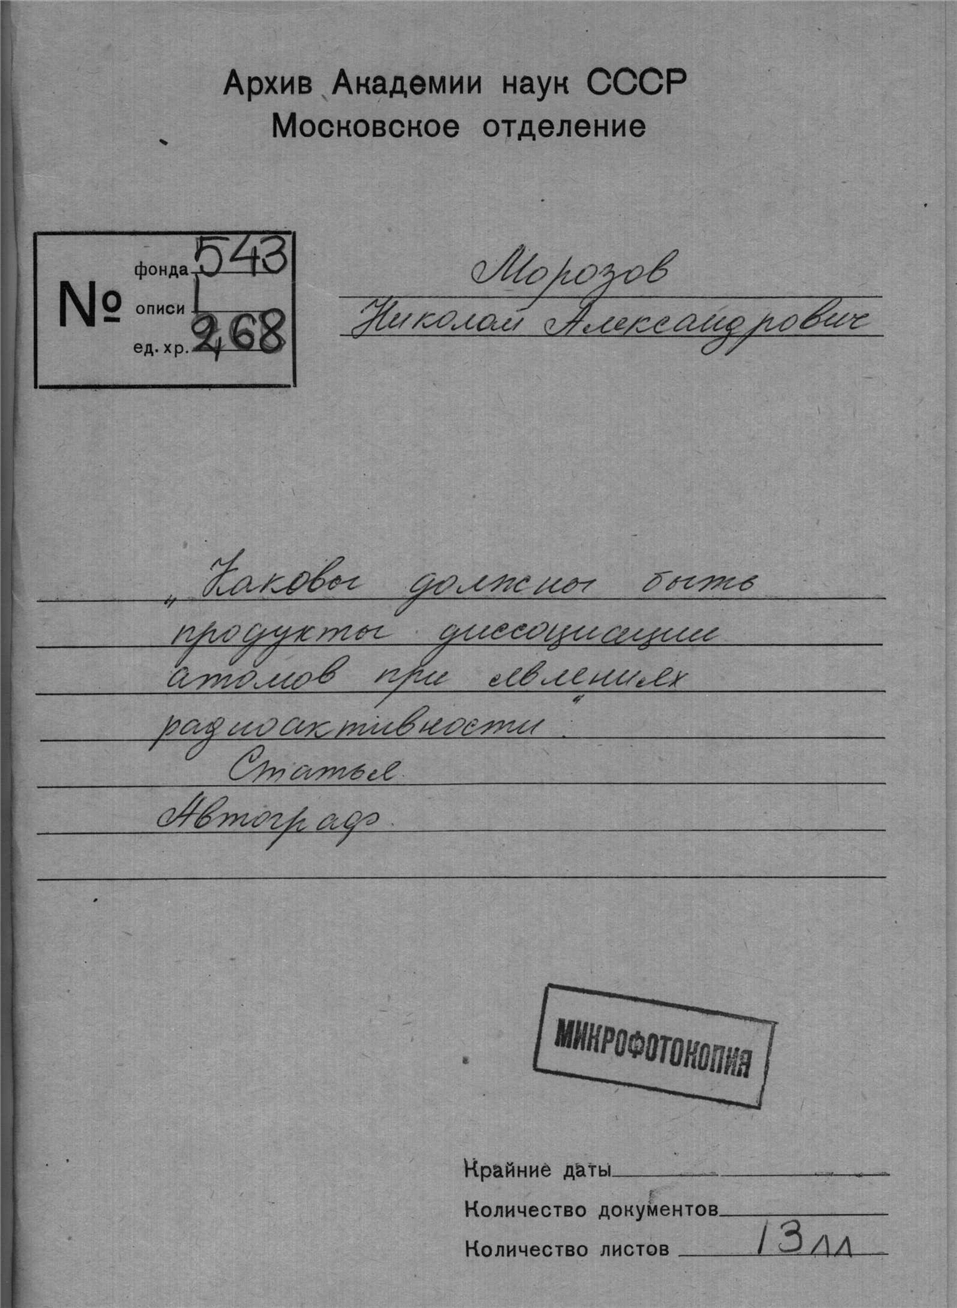 Архив Академии наук СССР
Московское отделение
№
фонда 543
описи 1
ед. хр. 268
Морозов
Николай Александрович
„Каковы должны быть
продукты диссоциации
атомов при явлениях
радиоактивности“.
Статья.
Автограф.
МИКРОФОТОКОПИЯ
Крайние даты
Количество документов
Количество листов 13 лл